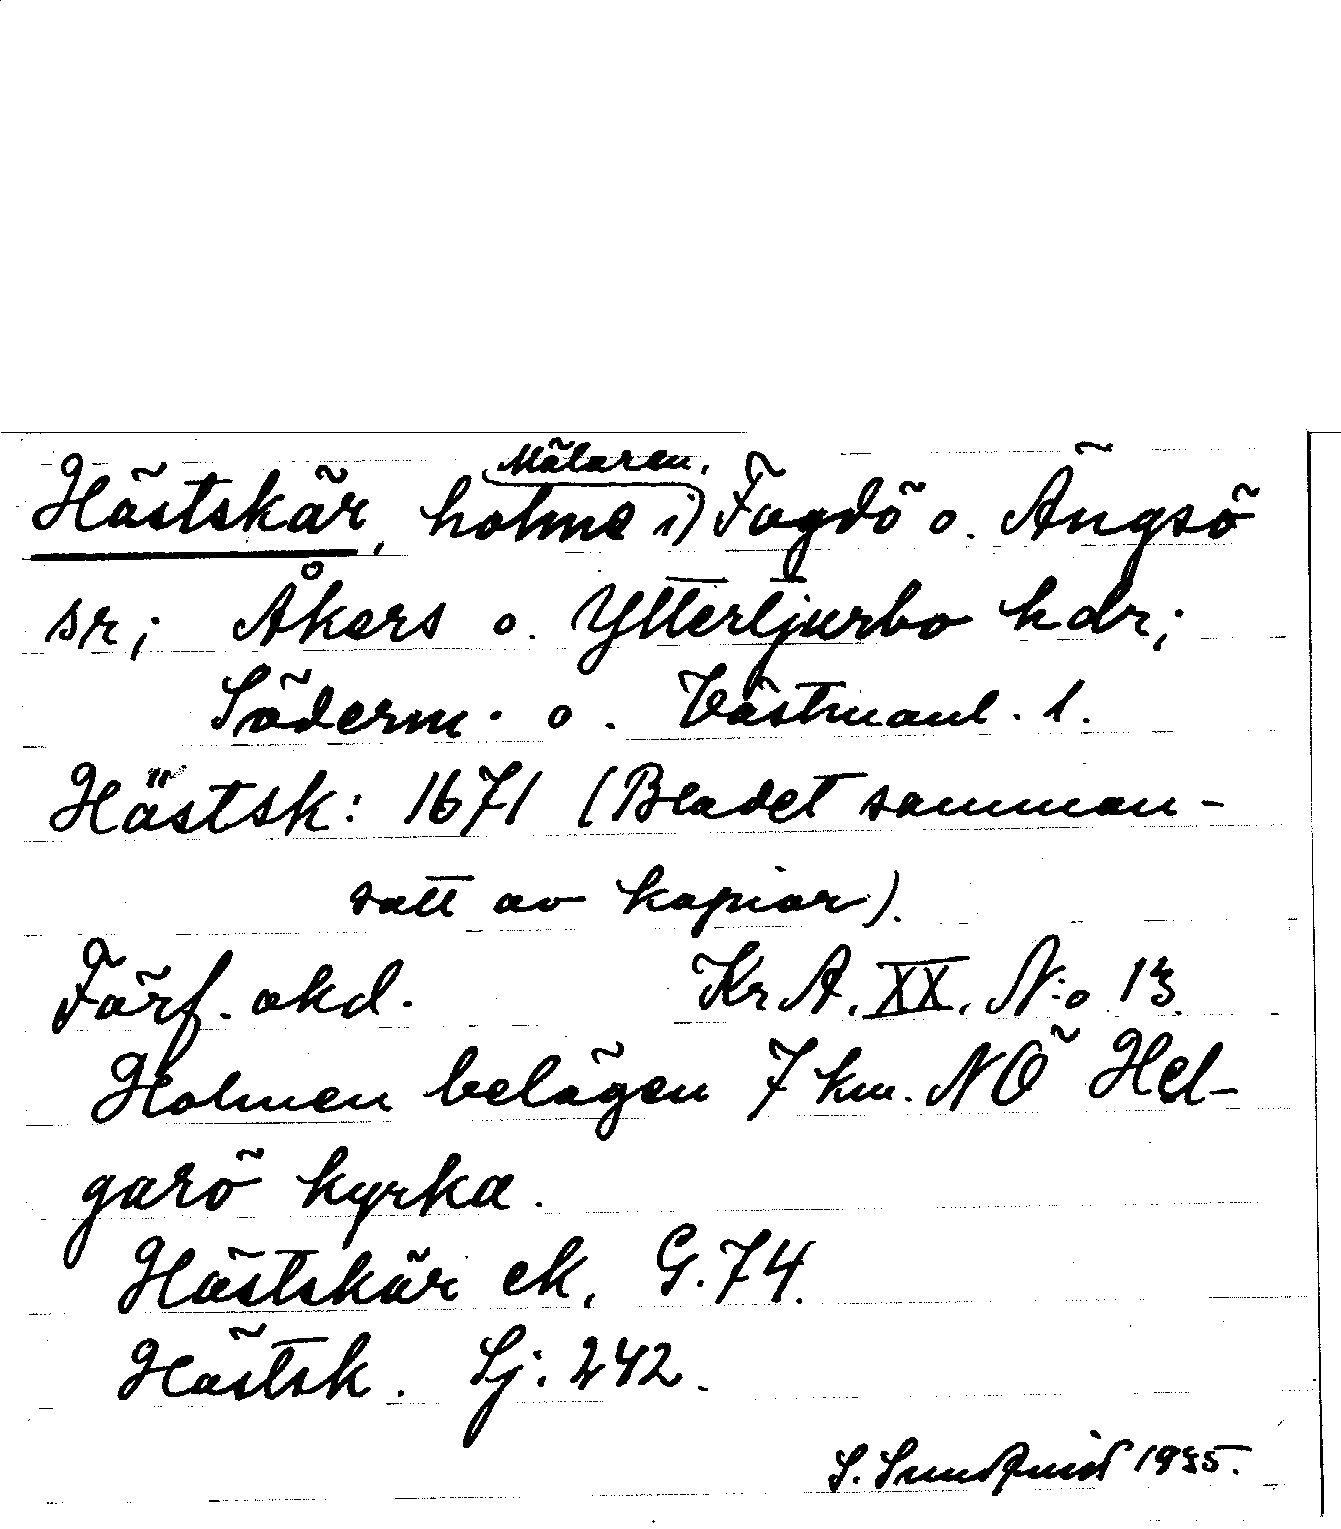 Hästskär, holme i Mälaren. Fogdö o. Ängsö
sr; Åkers o. Ytterljurbo hdr;
Söderm. o. Västmanl. l.
Hästsk: 1671 (Bladet samman-
satt av kopior).
Förf. okd. Kr A. XX. N:o 13.
Holmen belägen 7 km. NÖ Hel-
garö kyrka.
Hästskär ek. G. 74.
Hästsk. Sj: 242.
S. Sundquist 1935.